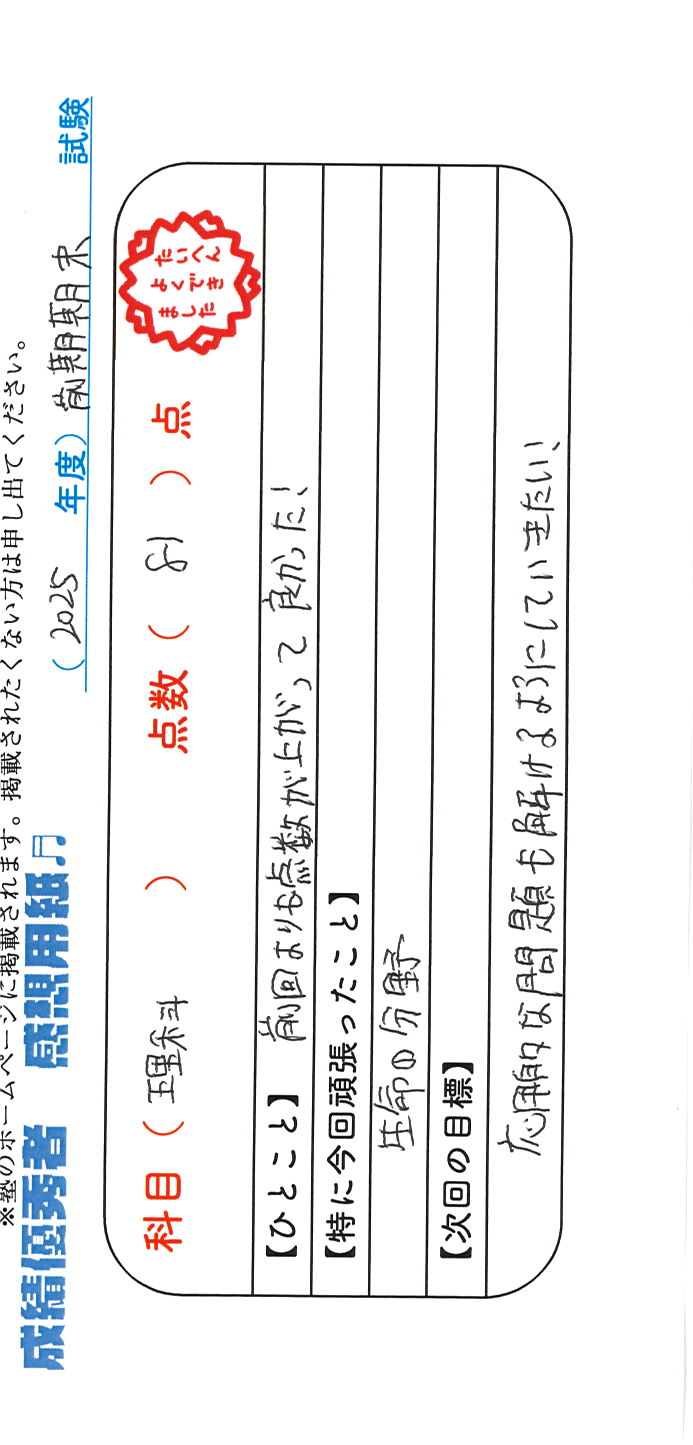 ※塾のホームページに掲載されます。掲載されたくない方は申し出てください。
成績優秀者 感想用紙♬
(2025 年度) 前期期末 試験
科目(理科) 点数(81)点
たいへん
よくでき
ました
【ひとこと】 前回よりも点数が上がって良かった!
【特に今回頑張ったこと】
生命の分野
【次回の目標】
応用的な問題も解けるようにしていきたい!